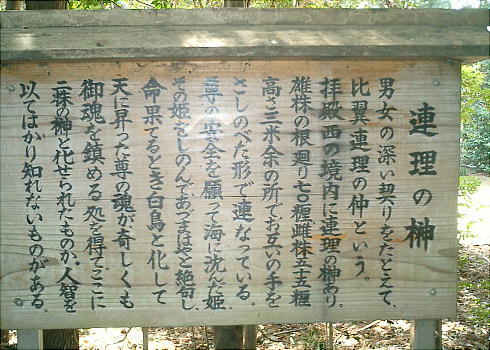 連理の榊
男女の深い契りをたとえて、
比翼連理の仲という。
拝殿西の境内に連理の榊あり
雄株の根廻り七〇糎雌株三五糎
高さ三米余の所でお互いの手を
さしのべた形で連なっている。
尊の安全を願って海に沈んだ姫
その姫をしのんであづまはやと絶句し、
命果てるとき白鳥と化して
天に昇った尊の魂が、奇しくも
御魂を鎮める処を得てここに
二株の榊と化せられたものか、人智を
以てはかり知れないものがある。